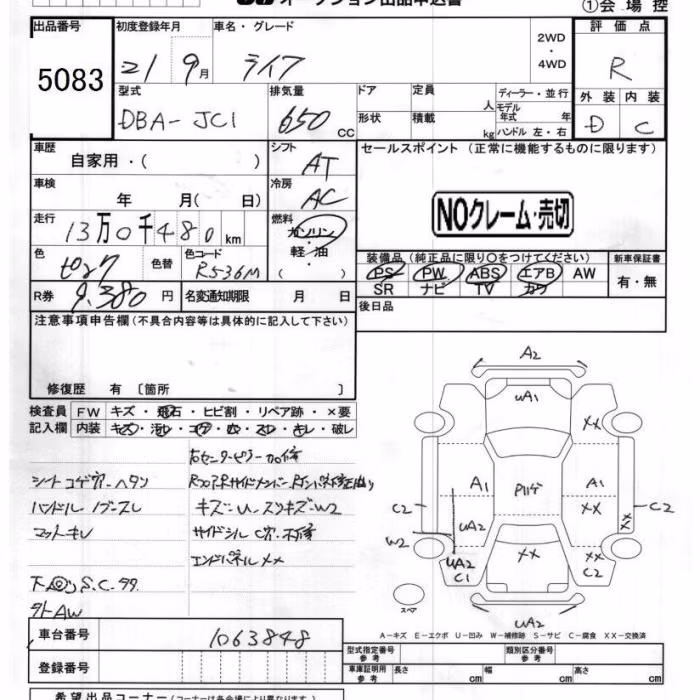 ①会場控
出品番号 初度登録年月 車名・グレード 評価点
5083
21 9月 ライフ 2WD・4WD R
型式 排気量 ドア 定員 人 ディーラー・並行 外装 内装
DBA-JC1 650 CC 形状 積載 kg モデル年式 年 ハンドル 左・右 D C
車歴 シフト セールスポイント (正常に機能するものに限ります)
自家用・( ) AT
車検 冷房
年 月(日) AC NOクレーム・売切
走行 燃料
13万0千480km ガソリン・軽油・( )
色 色替 色コード 装備品 (純正品に限り○をつけてください) 新車保証書
ピンク R536M PS PW ABS エアB AW 有・無
R券 9,380円 名変通知期限 月 日 SR ナビ TV カワ
注意事項申告欄 (不具合内容等は具体的に記入して下さい) 後日品
修復歴 有 〔箇所 〕
検査員 FW キズ・飛石・ヒビ割・リペア跡・×要
記入欄 内装 キズ・汚レ・コゲ・穴・スレ・キレ・破レ
右センターピラー加修
シートコゲ穴・ヘタリ
キズ・U・スリキズ・W2
マットキレ サイドシル C穴・不修
エンドパネル××
S.C.
外AW
A2
uA1
××
A1 A1
C2 ×× C2
uA2 ××
W2
×× ××
uA2 C2
C1
スペア
uA2
A-キズ E-エクボ U-凹み W-補修跡 S-サビ C-腐食 XX-交換済
車台番号 1063848
登録番号
型式指定番号 参考 類別区分番号 参考
車庫証明用 参考 長さ cm 幅 cm 高さ cm
希望出品コーナー